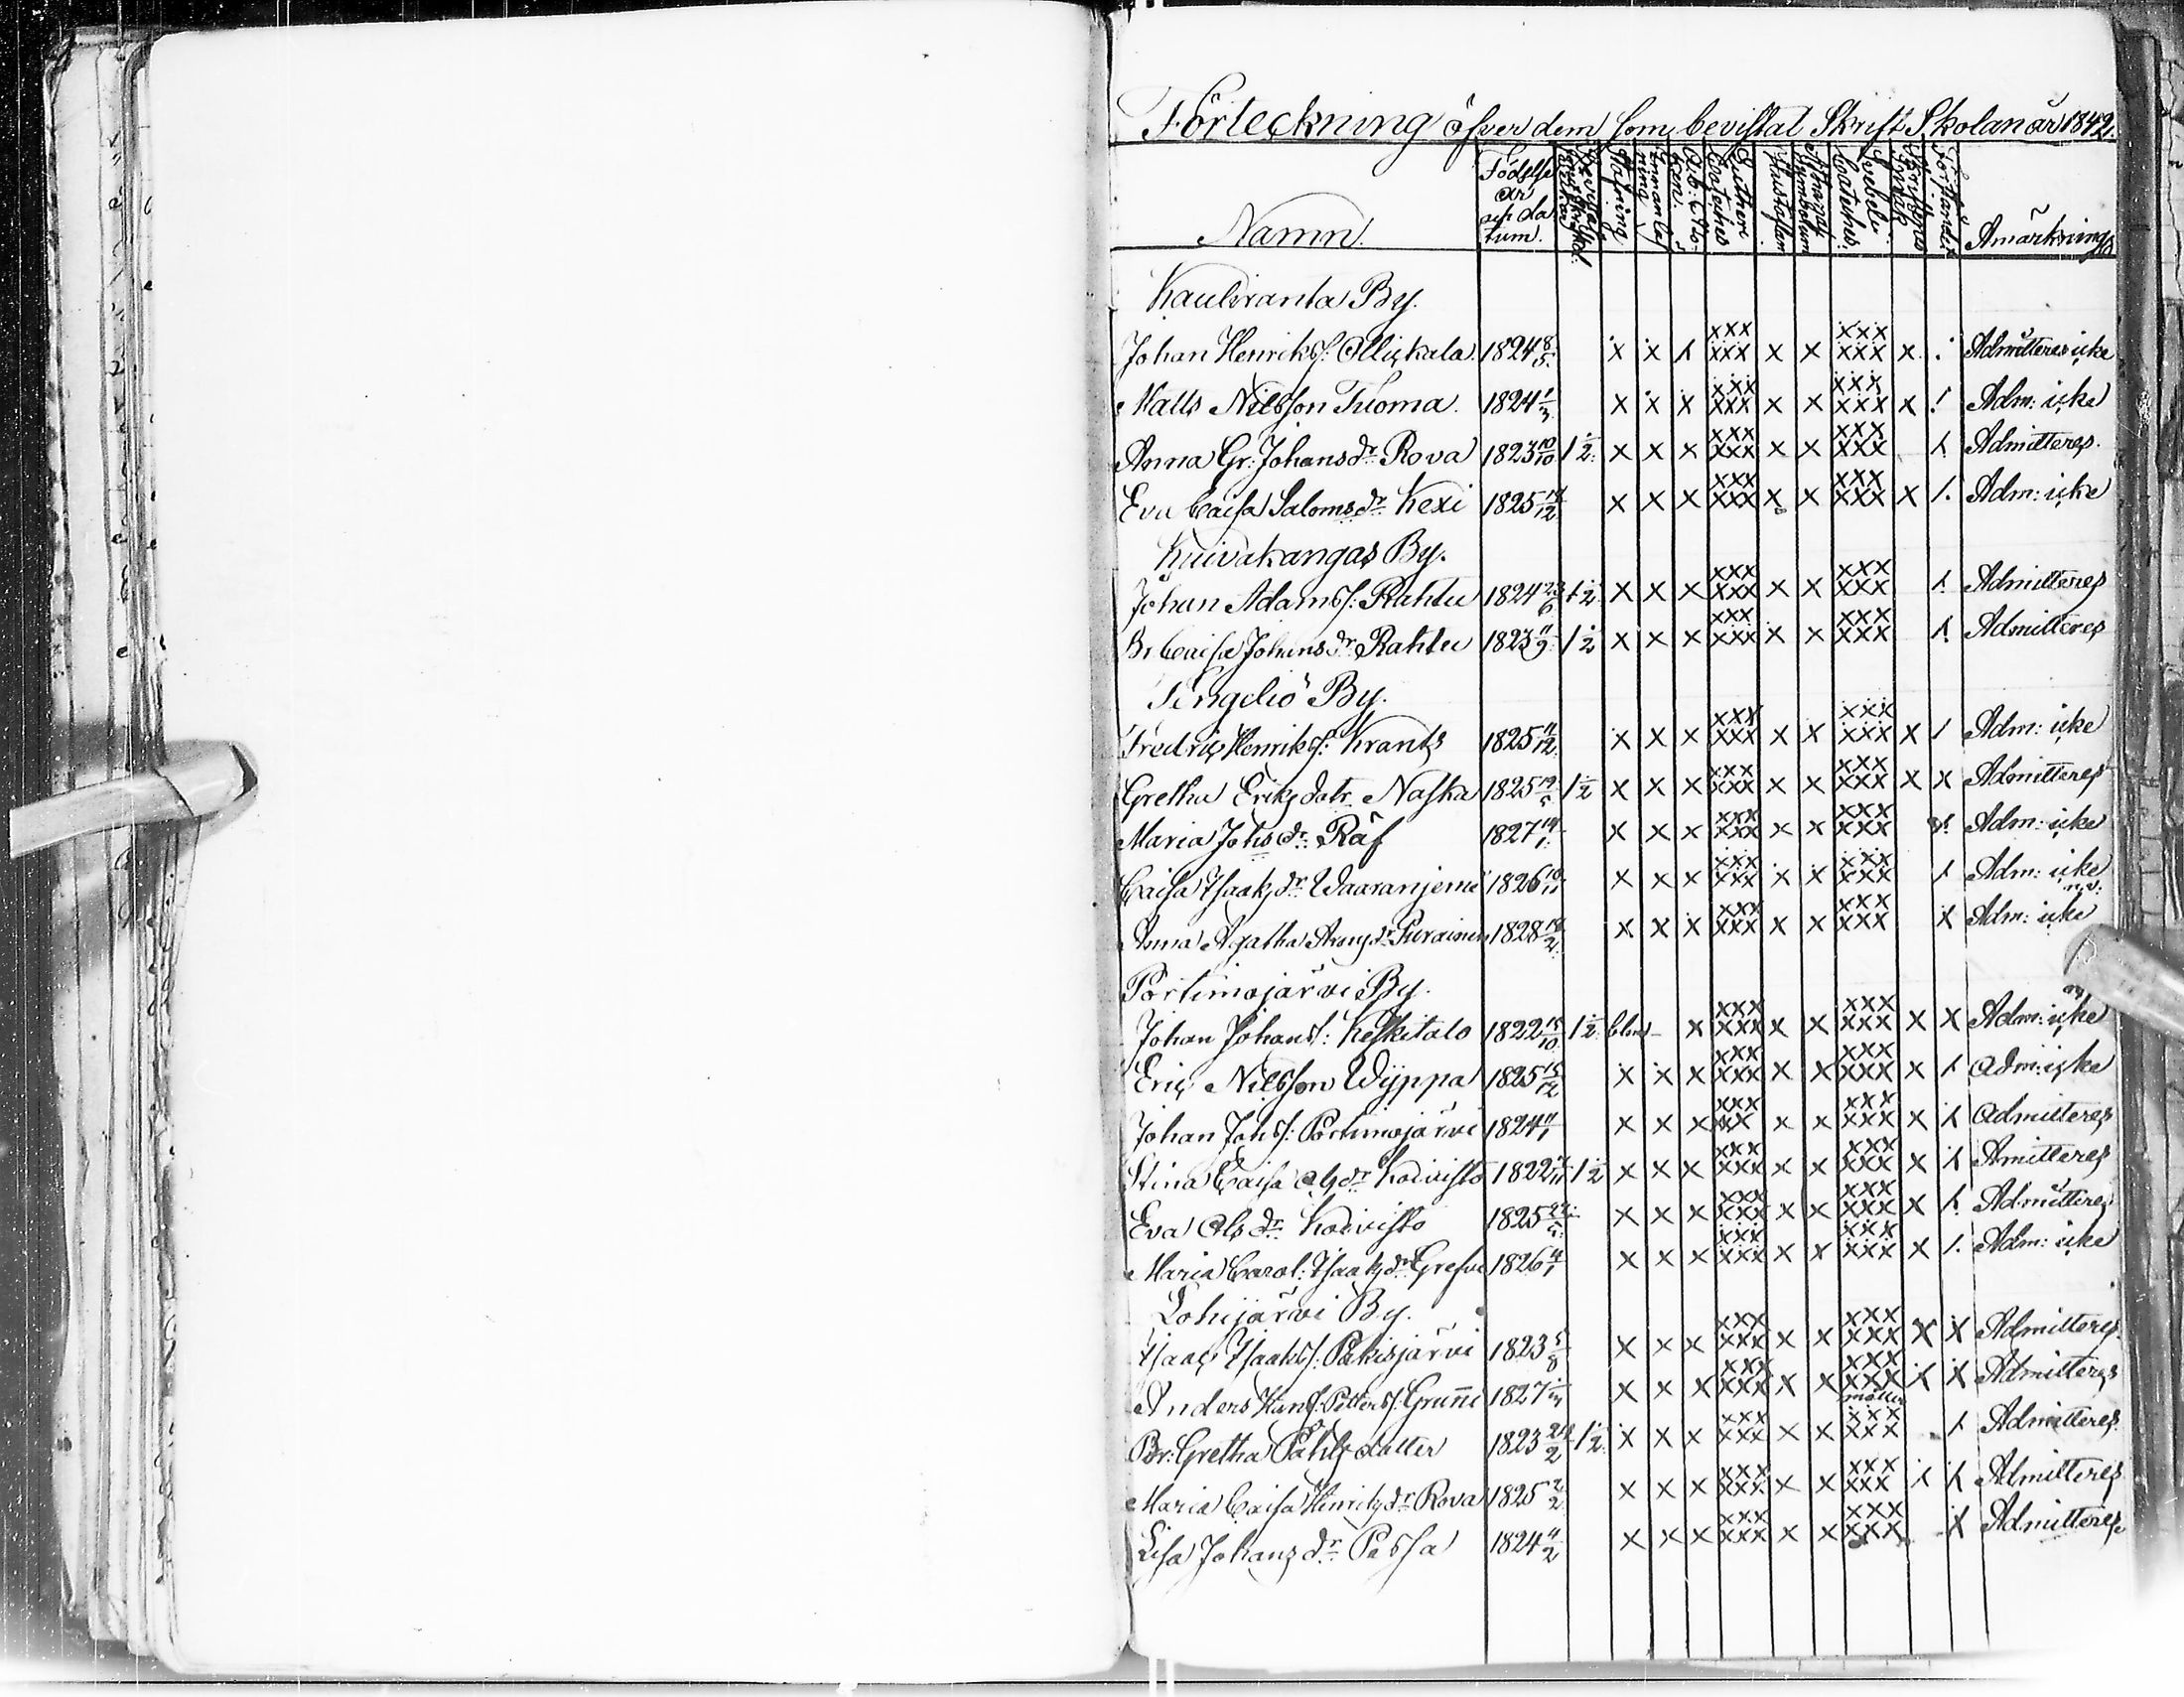 Förteckning öfver dem som bevistat Skrift Skolan år 1842.
Namn. Födelse år och datum. Stafning Innanläsning Lutheri Cateches Hustaflan Symbolum Svebelii Cateches Förståndet Anmärkning
Kauliranta By.
Johan Henrikss: Ollickala 1824 8/5 x x x xxx xxx x x xxx xxx x Admitteras icke
Matts Nilsson Tuoma. 1824 1/3 x x x xxx xxx x x xxx xxx x Adm: icke
Anna Gr: Johansdr Rova 1823 10/10 1/2 x x x xxx xxx x x xxx xxx Admitteres.
Eva Caisa Salomsdr Kexi 1825 14/12 x x x xxx xxx x x xxx xxx x Adm: icke
Kuivakangas By.
Johan Adamss: Rahtu 1824 23/6 1/2 x x x xxx xxx x x xxx xxx Admitteres
Br Caisa Johansdr Rahtu 1823 11/9 1/2 x x x xxx xxx x x xxx xxx Admitteres
Tengeliö By.
Fredric Henrikss: Krantz 1825 11/12 x x x xxx xxx x x xxx xxx x Adm: icke
Gretha Eriksdotr Naska 1825 19/5 1/2 x x x xxx xxx x x xxx xxx x x Admitteres
Maria Johsdr Räf 1827 14/1 x x x xxx xxx x x xxx xxx Adm: icke
Caisa Isaaksdr Waaranjemi 1826 10/11 x x x xxx xxx x x xxx xxx Adm: icke
Anna Agatha Aronsdr Purainen 1828 18/2 x x x xxx xxx x x xxx xxx x Adm: icke
Portimojärvi By.
Johan Johanss: Keskitalo 1822 18/10 1/2 x xxx xxx x x xxx xxx x x Adm: icke
Eric Nilsson Wyppa 1825 15/12 x x x xxx xxx x x xxx xxx x Adm: icke
Johan Johss: Portimojärvi 1824 11/1 x x x xxx xxx x x xxx xxx x Admitteres
Stina Caisa Olsdr Koivisto 1822 1/2 x x x xxx xxx x x xxx xxx x Amitteres
Eva Olsdr Koivisto 1825 x x x xxx xxx x x xxx xxx x Admitteres
Maria Carol: Isaaksdr Grefve 1826 x x x xxx xxx x x xxx xxx x Adm: icke
Lohijärvi By.
Isaac Isaakss: Pakisjärvi 1823 5/8 x x x xxx xxx x x xxx xxx x x Admitteres.
Anders Hans Petterss: Grunni 1827 x x x xxx xxx x x xxx xxx x Admitteres
Br: Gretha Påhlsdotter 1823 24/2 1/2 x x x xxx xxx x x xxx xxx Admitteres.
Maria Caisa Henriksdr Rova 1825 2/2 x x x xxx xxx x x xxx xxx Admitteres
Lisa Johansdr Passa 1824 11/2 x x x xxx xxx x x xxx xxx x Admitteres